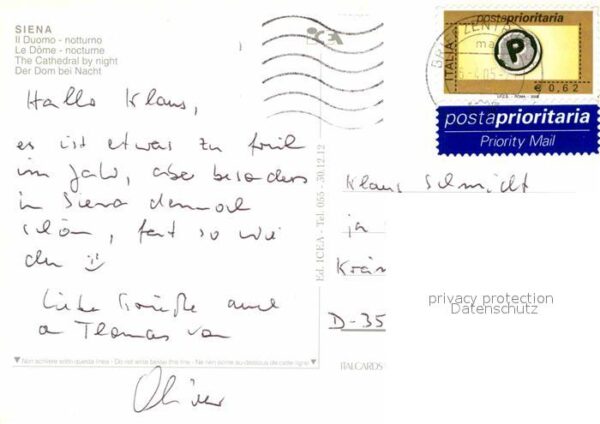 SIENA
Il Duomo - notturno
Le Dôme - nocturne
The Cathedral by night
Der Dom bei Nacht
Hallo Klaus,
es ist etwas zu früh
im Jahr, aber besonders
in Siena dennoch
schön, fast so wie
du
Liebe Grüße auch
an Thomas von
Oliver
Non scrivere sotto questa linea - Do not write below this line - Ne rien écrire au-dessous de cette ligne
Ed. ICEA - Tel. 055 - 30.12.12
ICEA
postaprioritaria
P
ITALIA
€ 0,62
I.P.Z.S. - ROMA
postaprioritaria
Priority Mail
Klaus Schmidt
D-35
privacy protection
Datenschutz
ITALCARDS